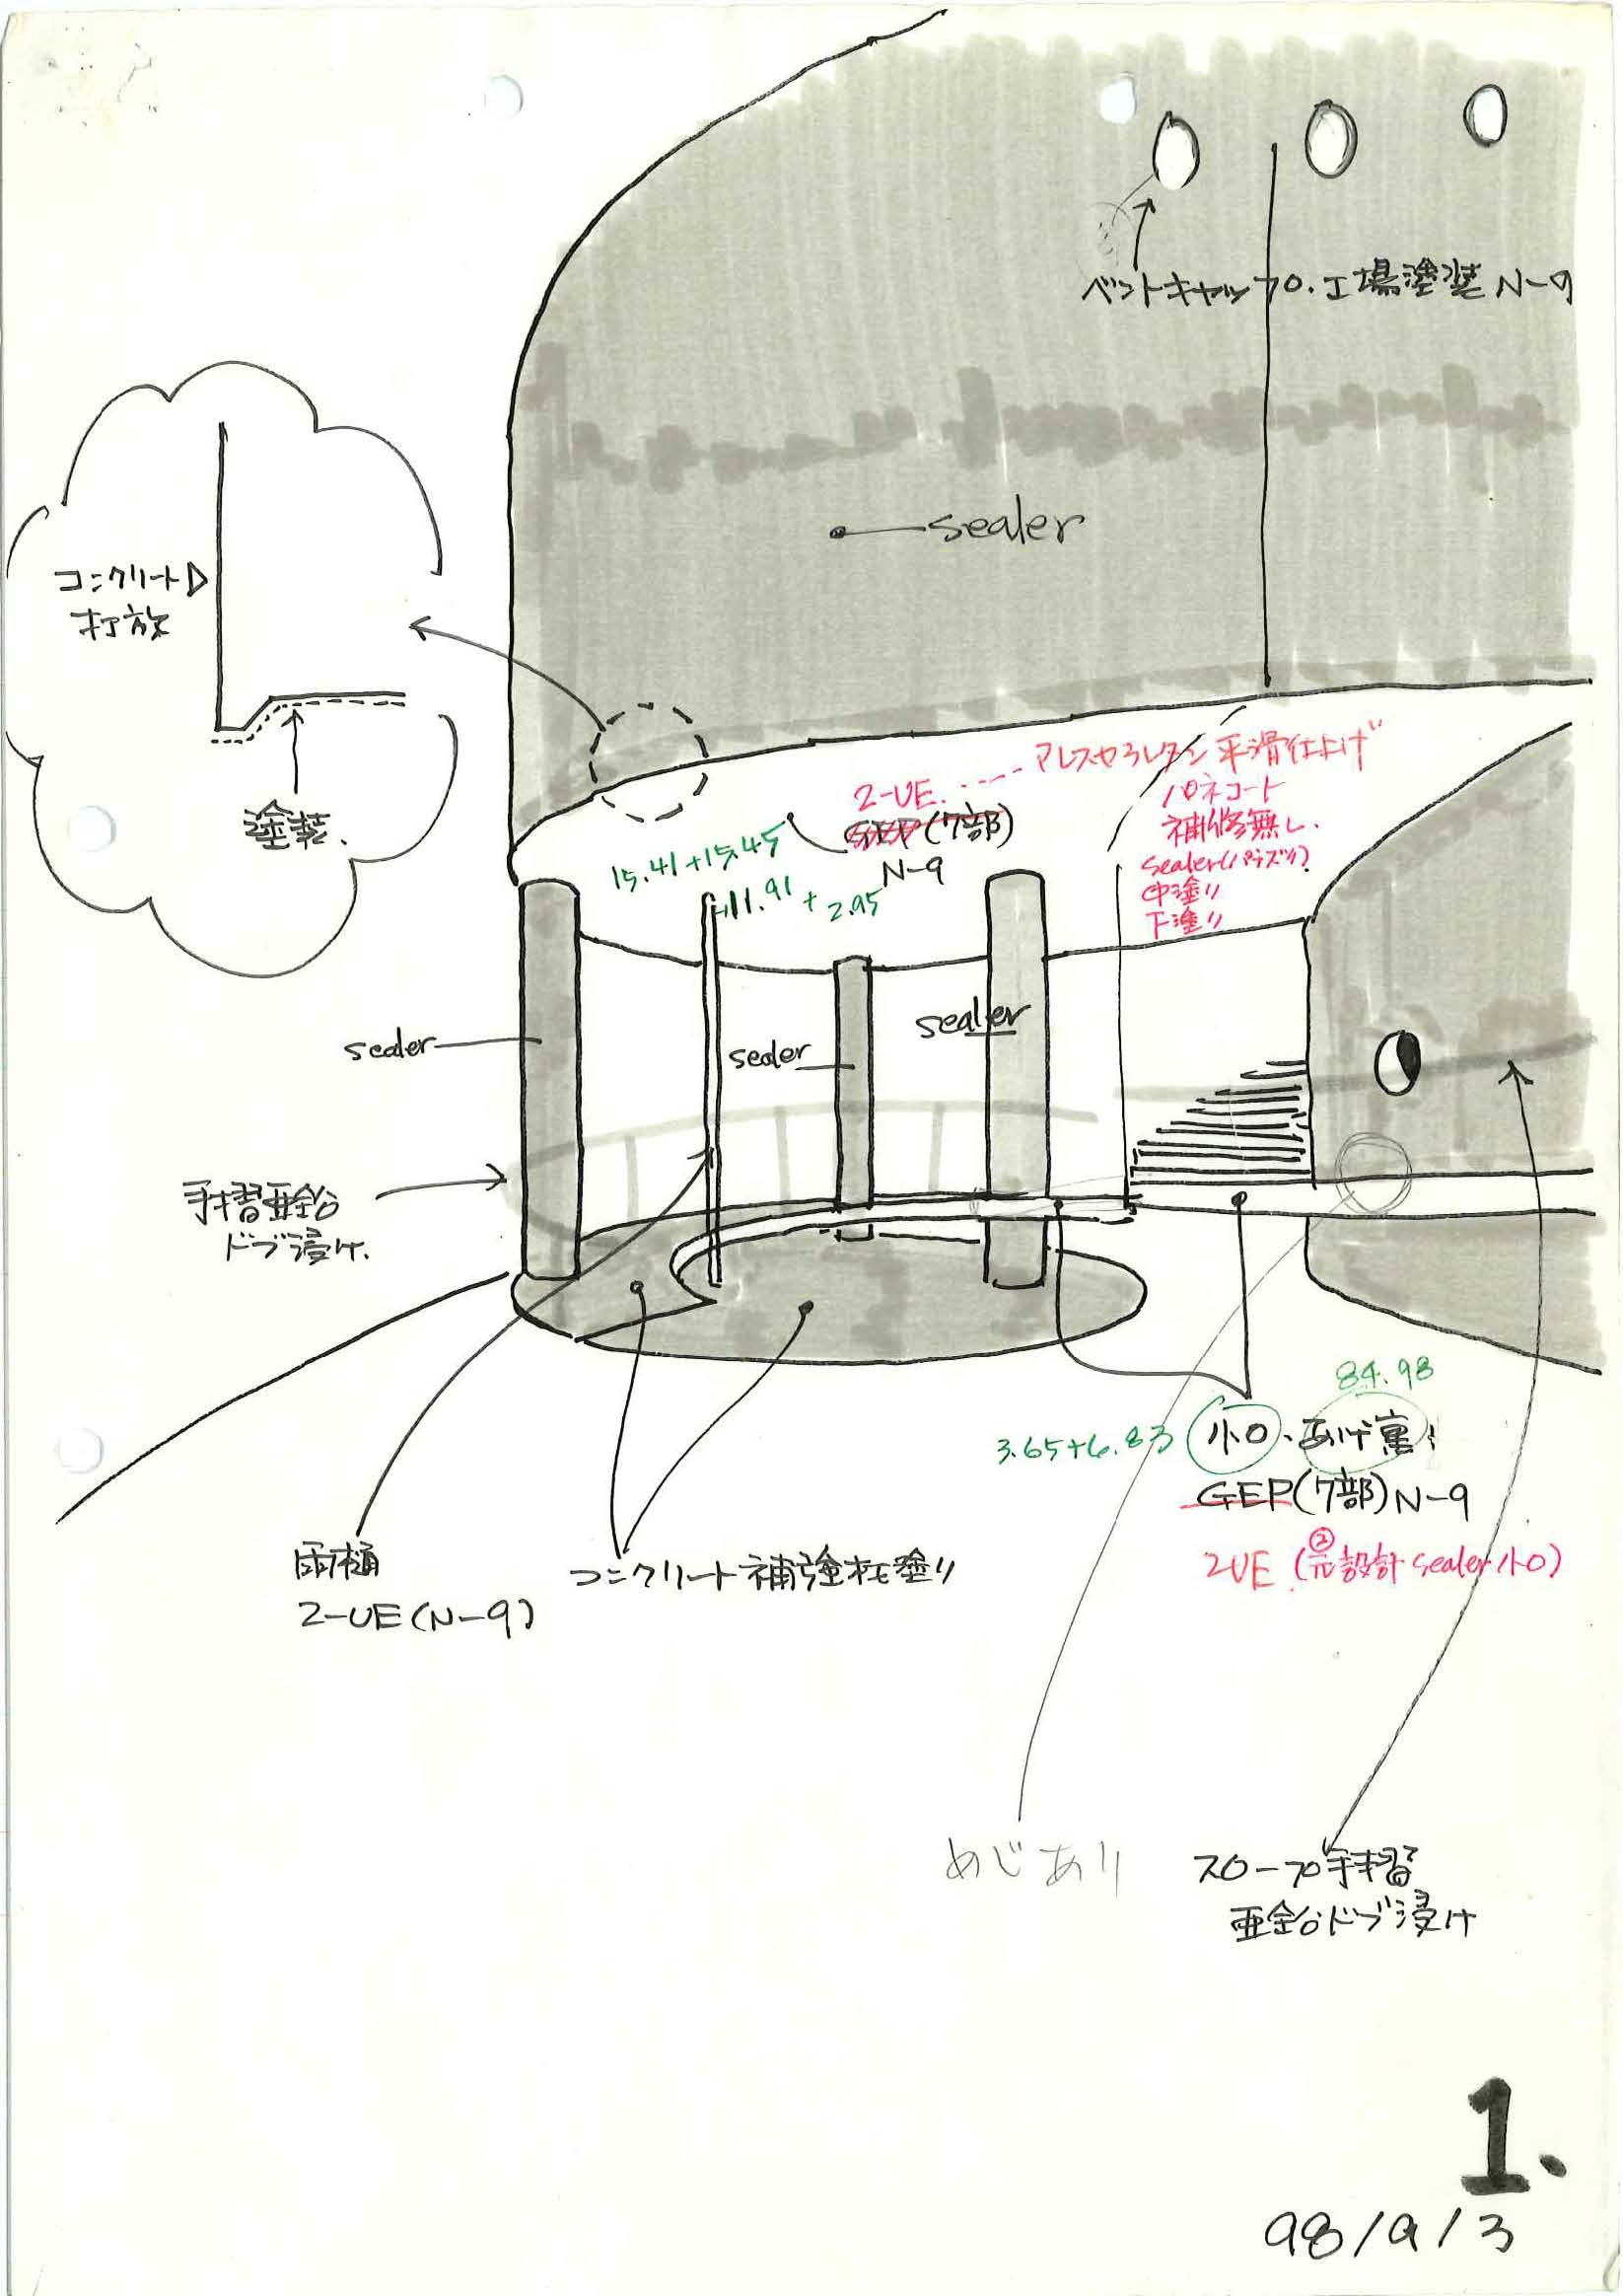 ベントキャップ.工場塗装 N-9
sealer
コンクリート
打放
塗装.
2-UE.・・・・・アレスセラレタン 平滑仕上げ
パネコート
補修無し.
sealer(パラズリ?)
中塗り
下塗り
GEP(7部)
N-9
15.41+15.45
+11.91+2.95
sealer
sealer
sealer
手摺亜鉛
ドブ浸け.
84.98
3.65+6.83
小口、あげ裏
GEP(7部)N-9
2UE (元設計 sealer小口)
雨樋
2-UE(N-9)
コンクリート補強材塗り
めじあり
スロープ手摺
亜鉛ドブ浸け
1.
98/9/3